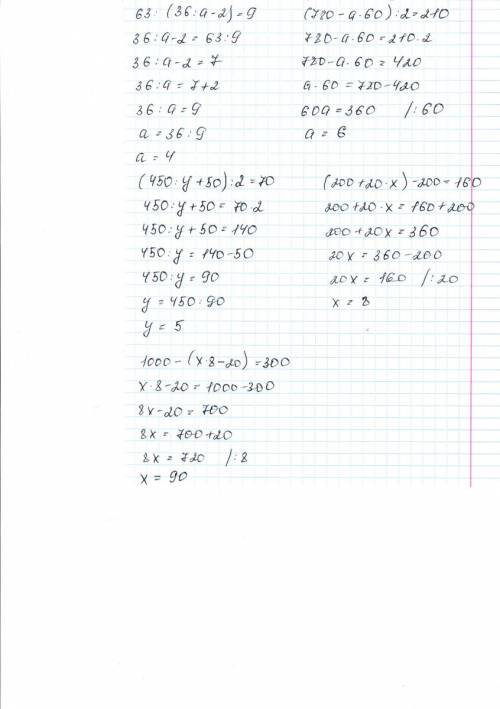 63 : (36 : a - 2) = 9
36 : a - 2 = 63 : 9
36 : a - 2 = 7
36 : a = 7 + 2
36 : a = 9
a = 36 : 9
a = 4
(780 - a · 60) : 2 = 210
780 - a · 60 = 210 · 2
780 - a · 60 = 420
a · 60 = 780 - 420
60a = 360 /: 60
a = 6
(450 : y + 50) : 2 = 70
450 : y + 50 = 70 · 2
450 : y + 50 = 140
450 : y = 140 - 50
450 : y = 90
y = 450 : 90
y = 5
(200 + 20 · x) - 200 = 160
200 + 20 · x = 160 + 200
200 + 20x = 360
20x = 360 - 200
20x = 160 /: 20
x = 8
1000 - (x · 8 - 20) = 300
x · 8 - 20 = 1000 - 300
8x - 20 = 700
8x = 700 + 20
8x = 720 /: 8
x = 90